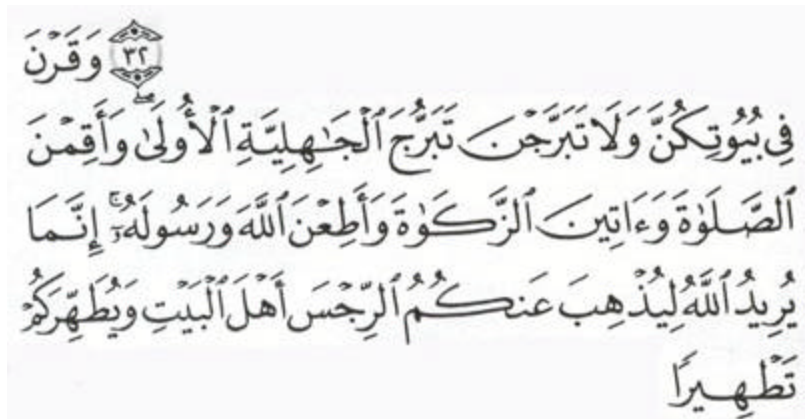 ۝٣٢ وَقَرْنَ
فِى بُيُوتِكُنَّ وَلَا تَبَرَّجْنَ تَبَرُّجَ ٱلْجَـٰهِلِيَّةِ ٱلْأُولَىٰ ۖ وَأَقِمْنَ
ٱلصَّلَوٰةَ وَءَاتِينَ ٱلزَّكَوٰةَ وَأَطِعْنَ ٱللَّهَ وَرَسُولَهُۥٓ ۚ إِنَّمَا
يُرِيدُ ٱللَّهُ لِيُذْهِبَ عَنكُمُ ٱلرِّجْسَ أَهْلَ ٱلْبَيْتِ وَيُطَهِّرَكُمْ
تَطْهِيرًا